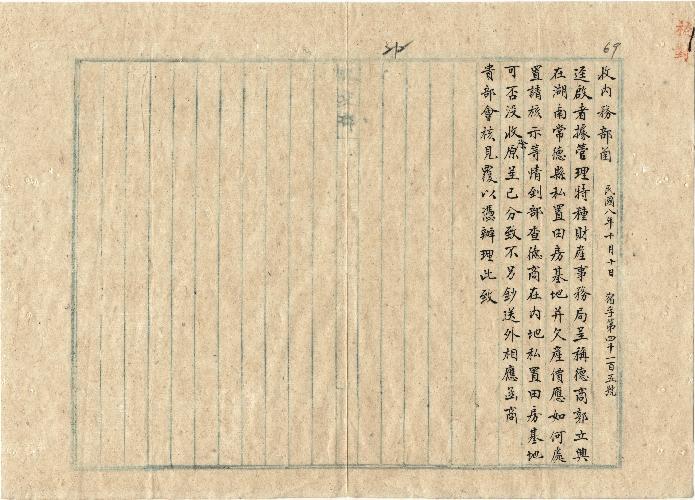 69
收內務部函 民國八年十月十日 字第四千一百五號
逕啟者據管理特種財產事務局呈稱德商郭立興
在湖南常德縣私置田房基地并欠產價應如何處
置請核示等情到部查德商在內地私置田房基地
可否沒收除原呈已分致不另鈔送外相應函商
貴部會核見覆以憑辦理此致